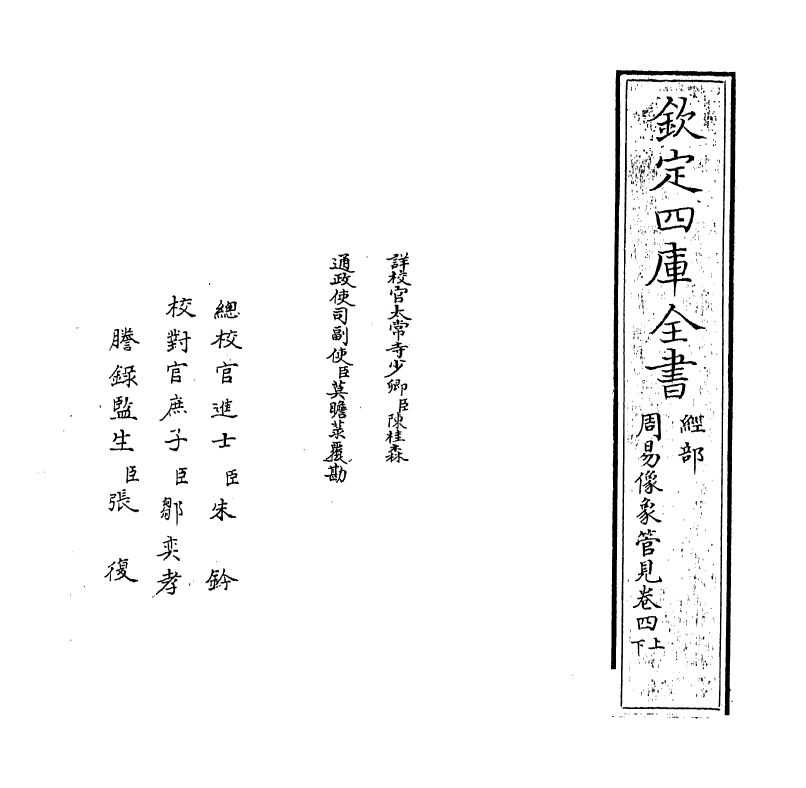 欽定四庫全書
經部
周易像象管見卷四上下
詳校官太常寺少卿臣陳桂森
通政使司副使臣莫瞻菉覆勘
總校官進士臣朱鈐
校對官庶子臣鄒奕孝
謄錄監生臣張復